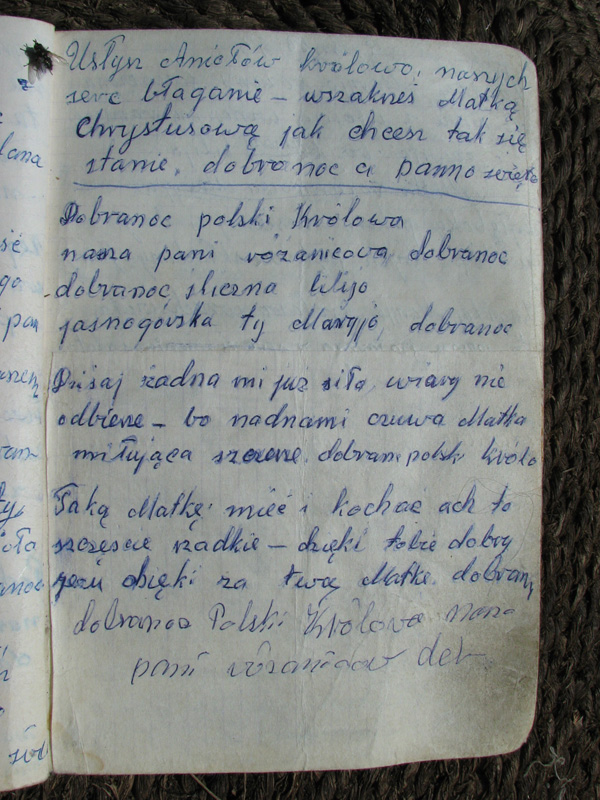 Usłysz Aniołów królowo, naszych
serc błaganie - wszakneś Matką
Chrystusową jak chcesz tak się
stanie, dobranoc ci panno święta
Dobranoc polski Królowa
nasza pani różańcowa dobranoc
dobranoc śliczna lilijo
jasnogórska ty Maryjo, dobranoc
Dzisaj żadna mi już siła, wiary nie
odbierze - bo nadnami czuwa Matka
miłująca szczerze. dobranc polski królo
Taką Matkę mieć i kochać ach to
szczęście rzadkie - dzięki tobie dobry
jezu dzięki za twą Matkę. dobranc
dobranoc Polski Królowo nasza
pani